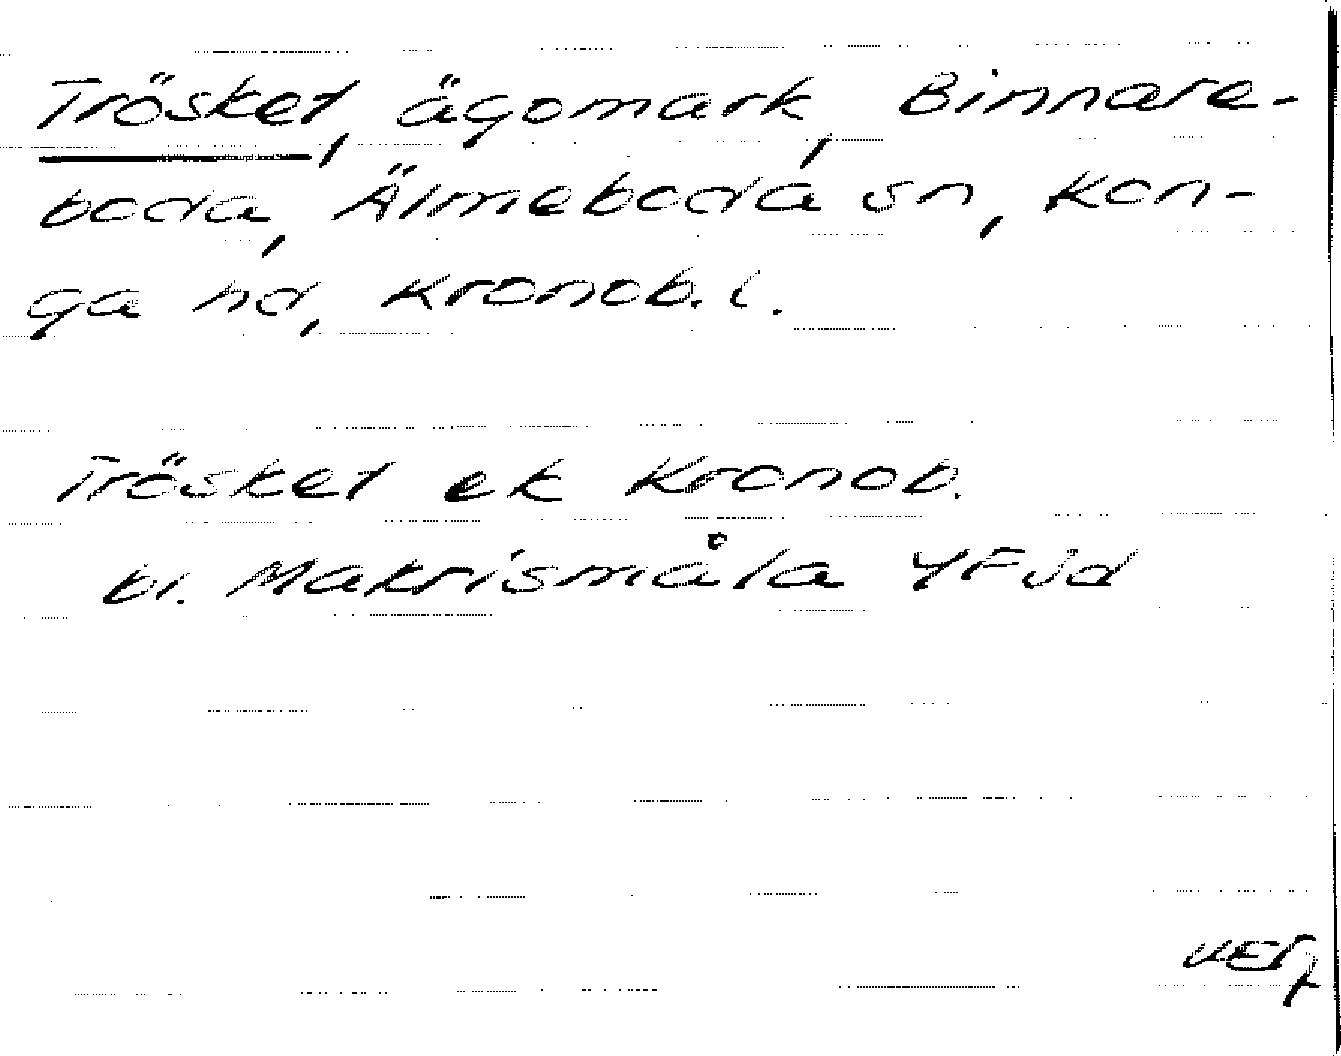 Trösket, ägomark, Binnare-
boda, Älmeboda sn, Kon-
ga hd, Kronob. l.
Trösket ek Kronob.
bl. Makrismåla 4F Jd